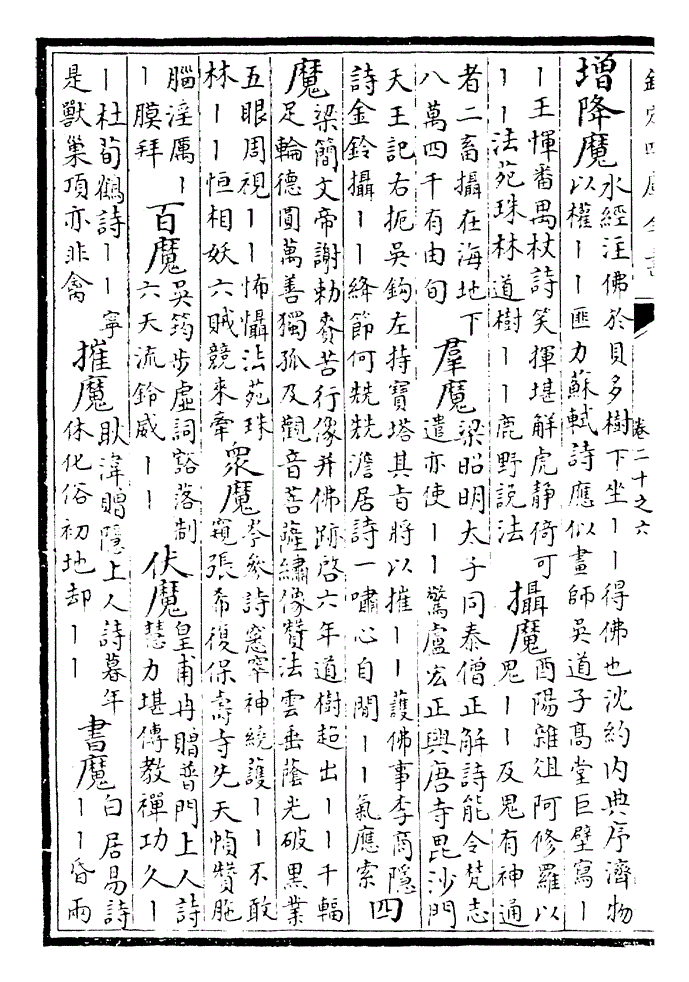 欽定四庫全書 卷二十之六
增降魔
水經注佛於貝多樹下坐丨丨得佛也沈約内典序濟物
以權丨丨匪力蘇軾詩應似畫師吳道子髙堂巨壁寫丨
丨王惲番禺杖詩笑揮堪解虎静倚可
丨丨法苑珠林道樹丨丨鹿野説法
攝魔
酉陽雜俎阿修羅以
鬼丨丨及鬼有神通
者二畜攝在海地下
八萬四千有由旬
羣魔
梁昭明太子同泰僧正解詩能令梵志
遣亦使丨丨驚盧宏正興唐寺毘沙門
天王記右扼吳鈎左持寳塔其旨將以摧丨丨護佛事李商隱
詩金鈴攝丨丨絳節何兢兢澹居詩一嘯心自閒丨丨氣應索
四
魔
梁簡文帝謝勑賚苦行像并佛跡啓六年道樹超出丨丨千輻
足輪德圓萬善獨孤及觀音菩薩繡像贊法雲垂蔭光破黒業
五眼周視丨丨怖懾法苑珠
林丨丨恒相妖六賊競來牽
衆魔
岑參詩窓窂神繞護丨丨不敢
窺張希復保壽寺先天幀贊胣
腦淫厲丨
丨膜拜
百魔
吳筠步虛詞豁落制
六天流鈴威丨丨
伏魔
皇甫冉贈普門上人詩
慧力堪傳教禪功久丨
丨杜荀鶴詩丨丨寧
是獸巢項亦非禽
摧魔
耿湋贈隱上人詩暮年
休化俗初地却丨丨
書魔
白居易詩
丨丨昏兩